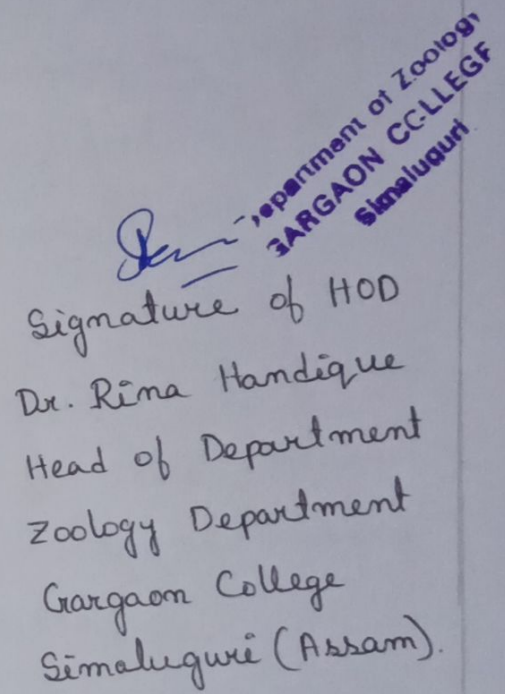 Department of Zoology
GARGAON COLLEGE
Simaluguri
Signature of HOD
Dr. Rina Handique
Head of Department
Zoology Department
Gargaon College
Simaluguri (Assam).